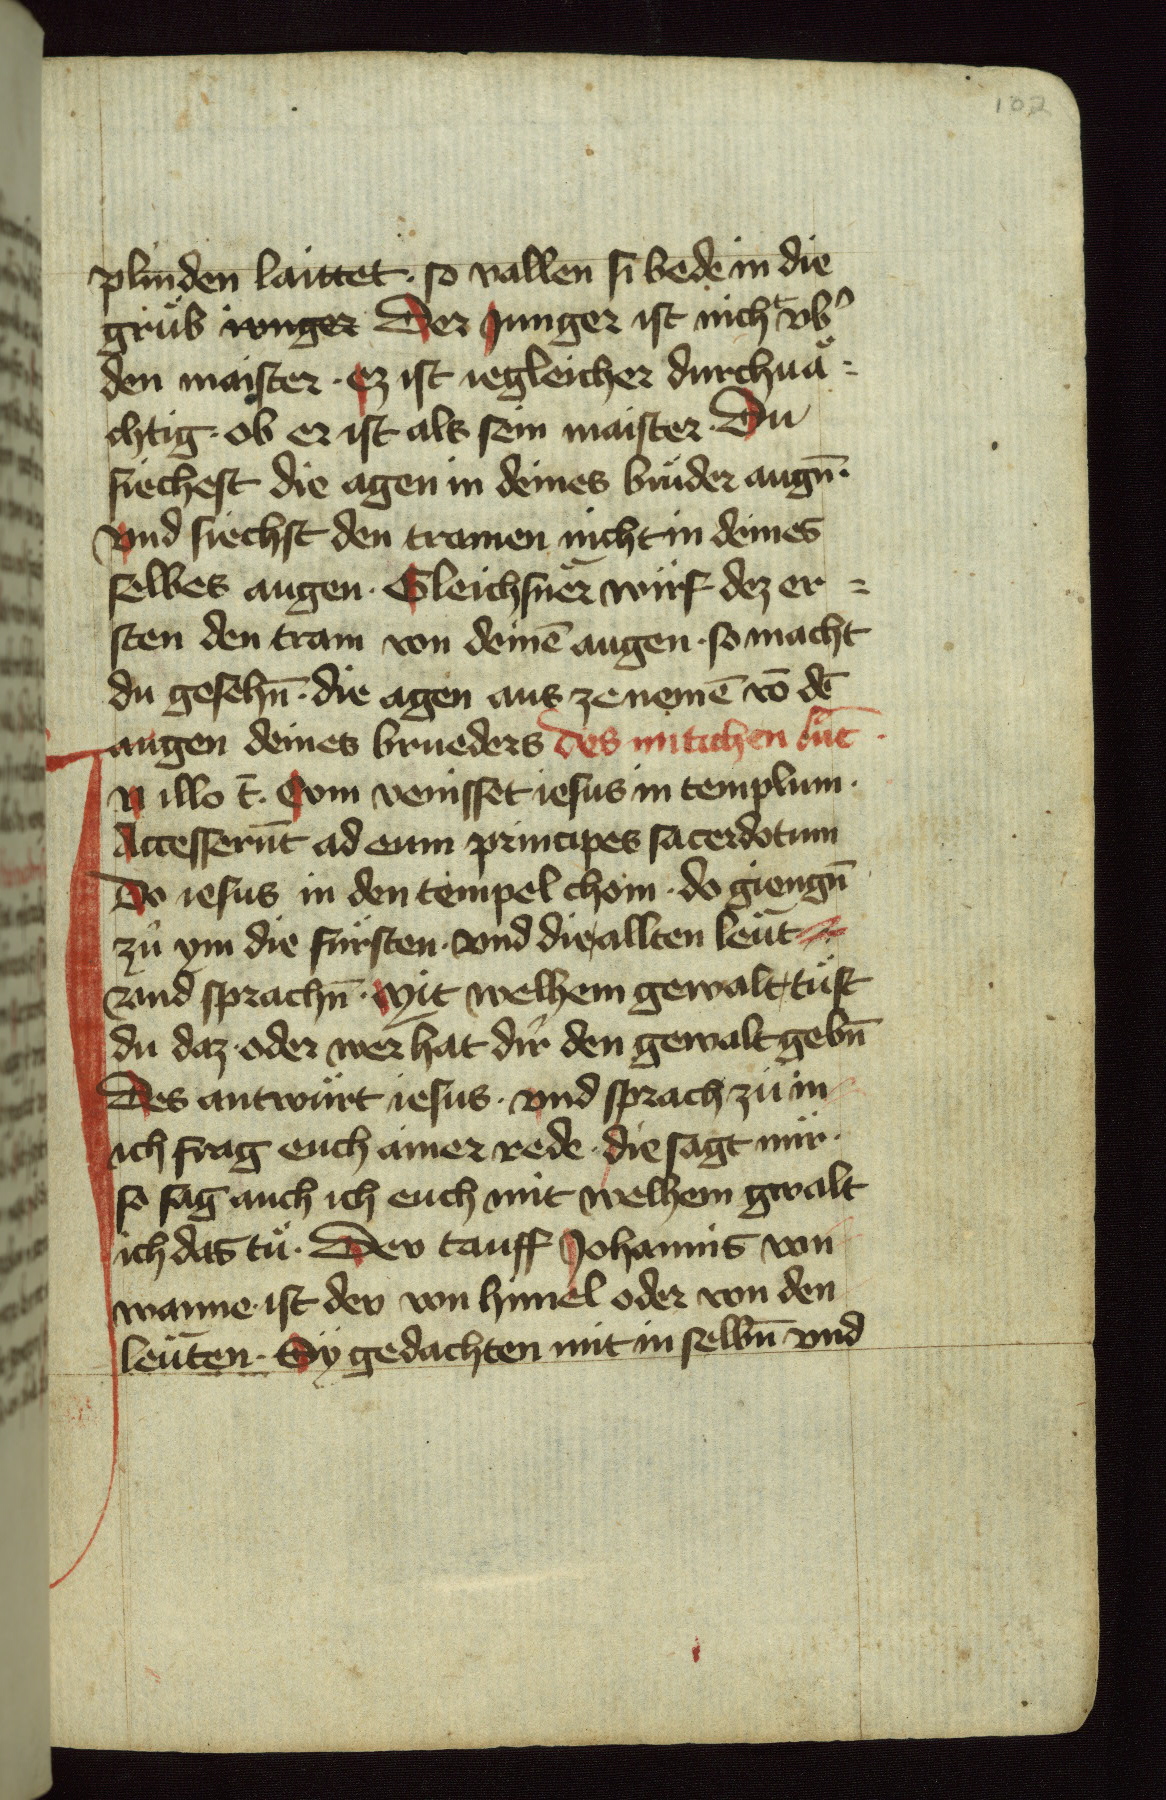 102
plinden laittet · so vallen si bede in die
grüb iunger Der Junger ist nicht vb᾽
den maister · ez ist iegleicher durchuä=
chtig · ob er ist als sein maister · Du
siechest die agen in deines brüder augn̄ ·
vnd siechst den tramen nicht in deines
selbes augen · Gleichsner würf dez er=
sten den tram von deinē augen · so macht
du gesehn̄ · die agen aus ze nemē vō dē
augen deines brueders Des mitichen
In illo t̄ · Com venisset iesus in templum ·
Accesserūt ad eum principes sacerdotum
Do iesus in den tempel chom · do giengn̄
zů ym die fürsten · vnd die allten leüt
vnd sprachn̄ · Mit welhem gewalt tüst
du daz · oder wer hat dir den gewalt gebn̄
Des antwürt iesus · vnd sprach zü in
ich frag euch ainer rede · die sagt mir ·
so sag auch ich euch mit welhem gwalt
ich das tü · Dev tauff Johannis von
wanne · ist dev von himel oder von den
leüten · Sÿ gedachten mit in selbn̄ vnd